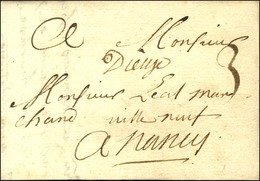 A Monsieur
Dieuze
3
Monsieur Leal mar
chand ville neuf
a nancy